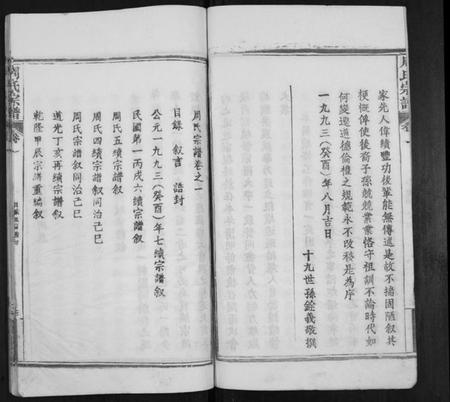 周氏宗譜
卷一
家先人偉績豐功後輩能無傳述是故不揣固陋叙其
梗概俾使後裔子孫兢兢業業恪守祖訓不論時代如
何變遷道德倫權之規範永不改移是為序
一九九三(癸酉)年八月吉日
十九世孫銓義敬撰
周氏宗譜卷之一
目錄 叙言 誥封
公元一九九三(癸酉)年七續宗譜叙
民國第一丙戌六續宗譜叙
周氏五續宗譜叙
周氏四續宗譜叙同治己巳
周氏宗譜叙同治己巳
道光丁亥再續宗譜叙
乾隆甲辰宗譜重編叙
周氏宗譜
卷一